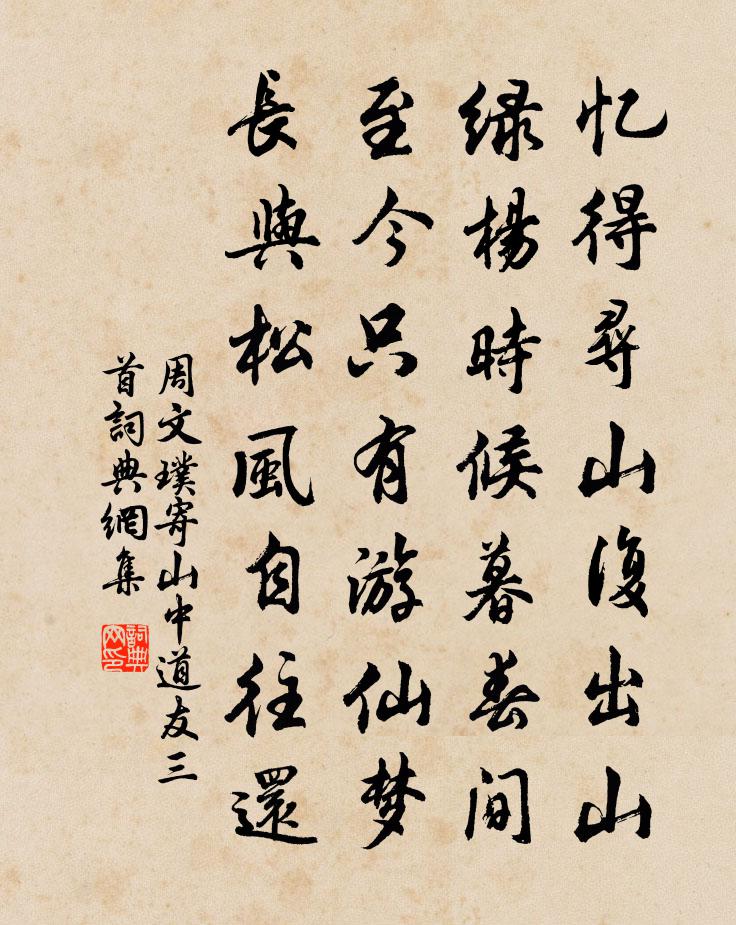 忆得尋山復出山
绿楊時候暮春间
至今只有游仙梦
長與松風自往還
周文璞寄山中道友三
首詞典網集
詞典
网印